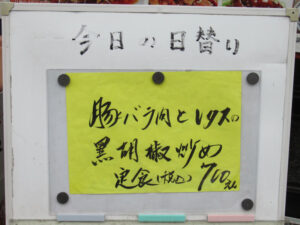 今日の日替り
豚バラ肉とレタスの
黒胡椒炒め
定食(税込)710えん